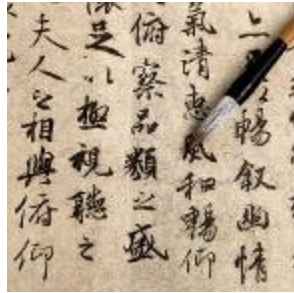 暢叙幽情
氣清惠風和暢仰
俯察品類之盛
懷足以極視聽之
夫人之相與俯仰